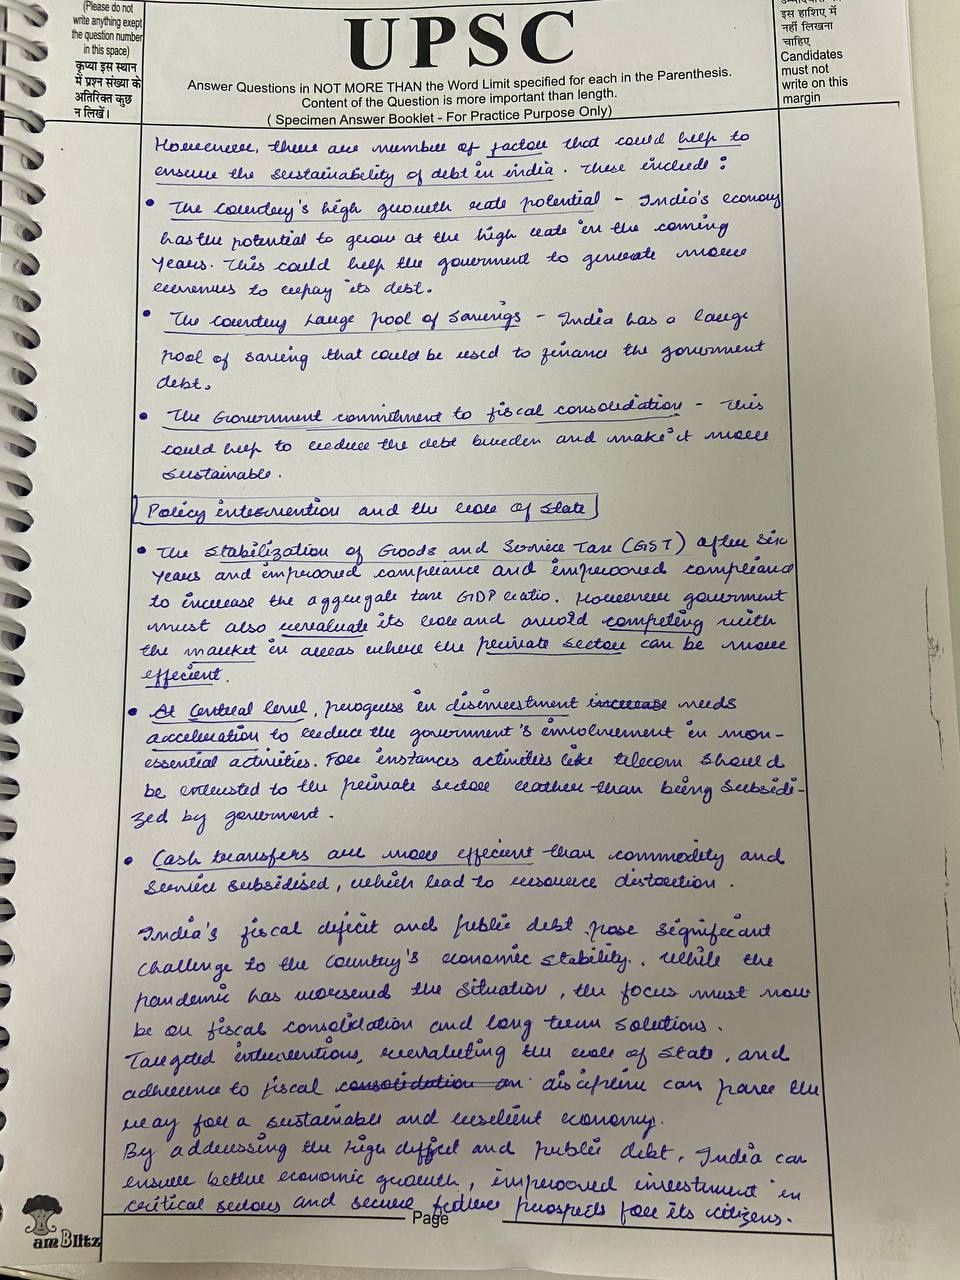 (Please do not
write anything exept
the question number
in this space)
कृप्या इस स्थान
में प्रश्न संख्या के
अतिरिक्त कुछ
न लिखें।
UPSC
Answer Questions in NOT MORE THAN the Word Limit specified for each in the Parenthesis.
Content of the Question is more important than length.
( Specimen Answer Booklet - For Practice Purpose Only)
इस हाशिए में
नहीं लिखना
चाहिए
Candidates
must not
write on this
margin
However, there are number of factor that could help to
ensure the sustainability of debt in india. These include :
• The country's high growth rate potential - India's economy
has the potential to grow at the high rate in the coming
years. This could help the goverment to generate more
revenues to repay its debt.
• The country Large pool of Savings - India has a large
pool of saving that could be used to finance the goverment
debt.
• The Government commitment to fiscal consolidation - This
could help to reduce the debt burden and make it more
sustainable.
Policy intervention and the role of State
• The stabilization of Goods and Service Tax (GST) after six
years and improved compliance and improved compliance
to increase the aggregate tax GDP ratio. However goverment
must also revaluate its role and avoid competing with
the market in areas where the private sector can be more
effecient.
• At Central level, progress in disinvestment increase needs
acceleration to reduce the government's involvement in non-
essential activities. For instances activities like telecom should
be entrusted to the private sector rather than being subsidi-
zed by goverment.
• Cash transfers are more effecient than commodity and
service subsidised, which lead to resource distortion.
India's fiscal deficit and public debt pose significant
challenge to the country's economic stability. While the
pandemic has worsened the situation, the focus must now
be on fiscal consolidation and long term solutions.
Targeted interventions, revaluting the role of State, and
adherence to fiscal consolidation an discipline can pave the
way for a sustainable and resilient economy.
By addressing the high deficit and public debt, India can
ensure better economic growth, improved investment in
critical sectors and secure future prospects for its citizens.
Page
am Blitz